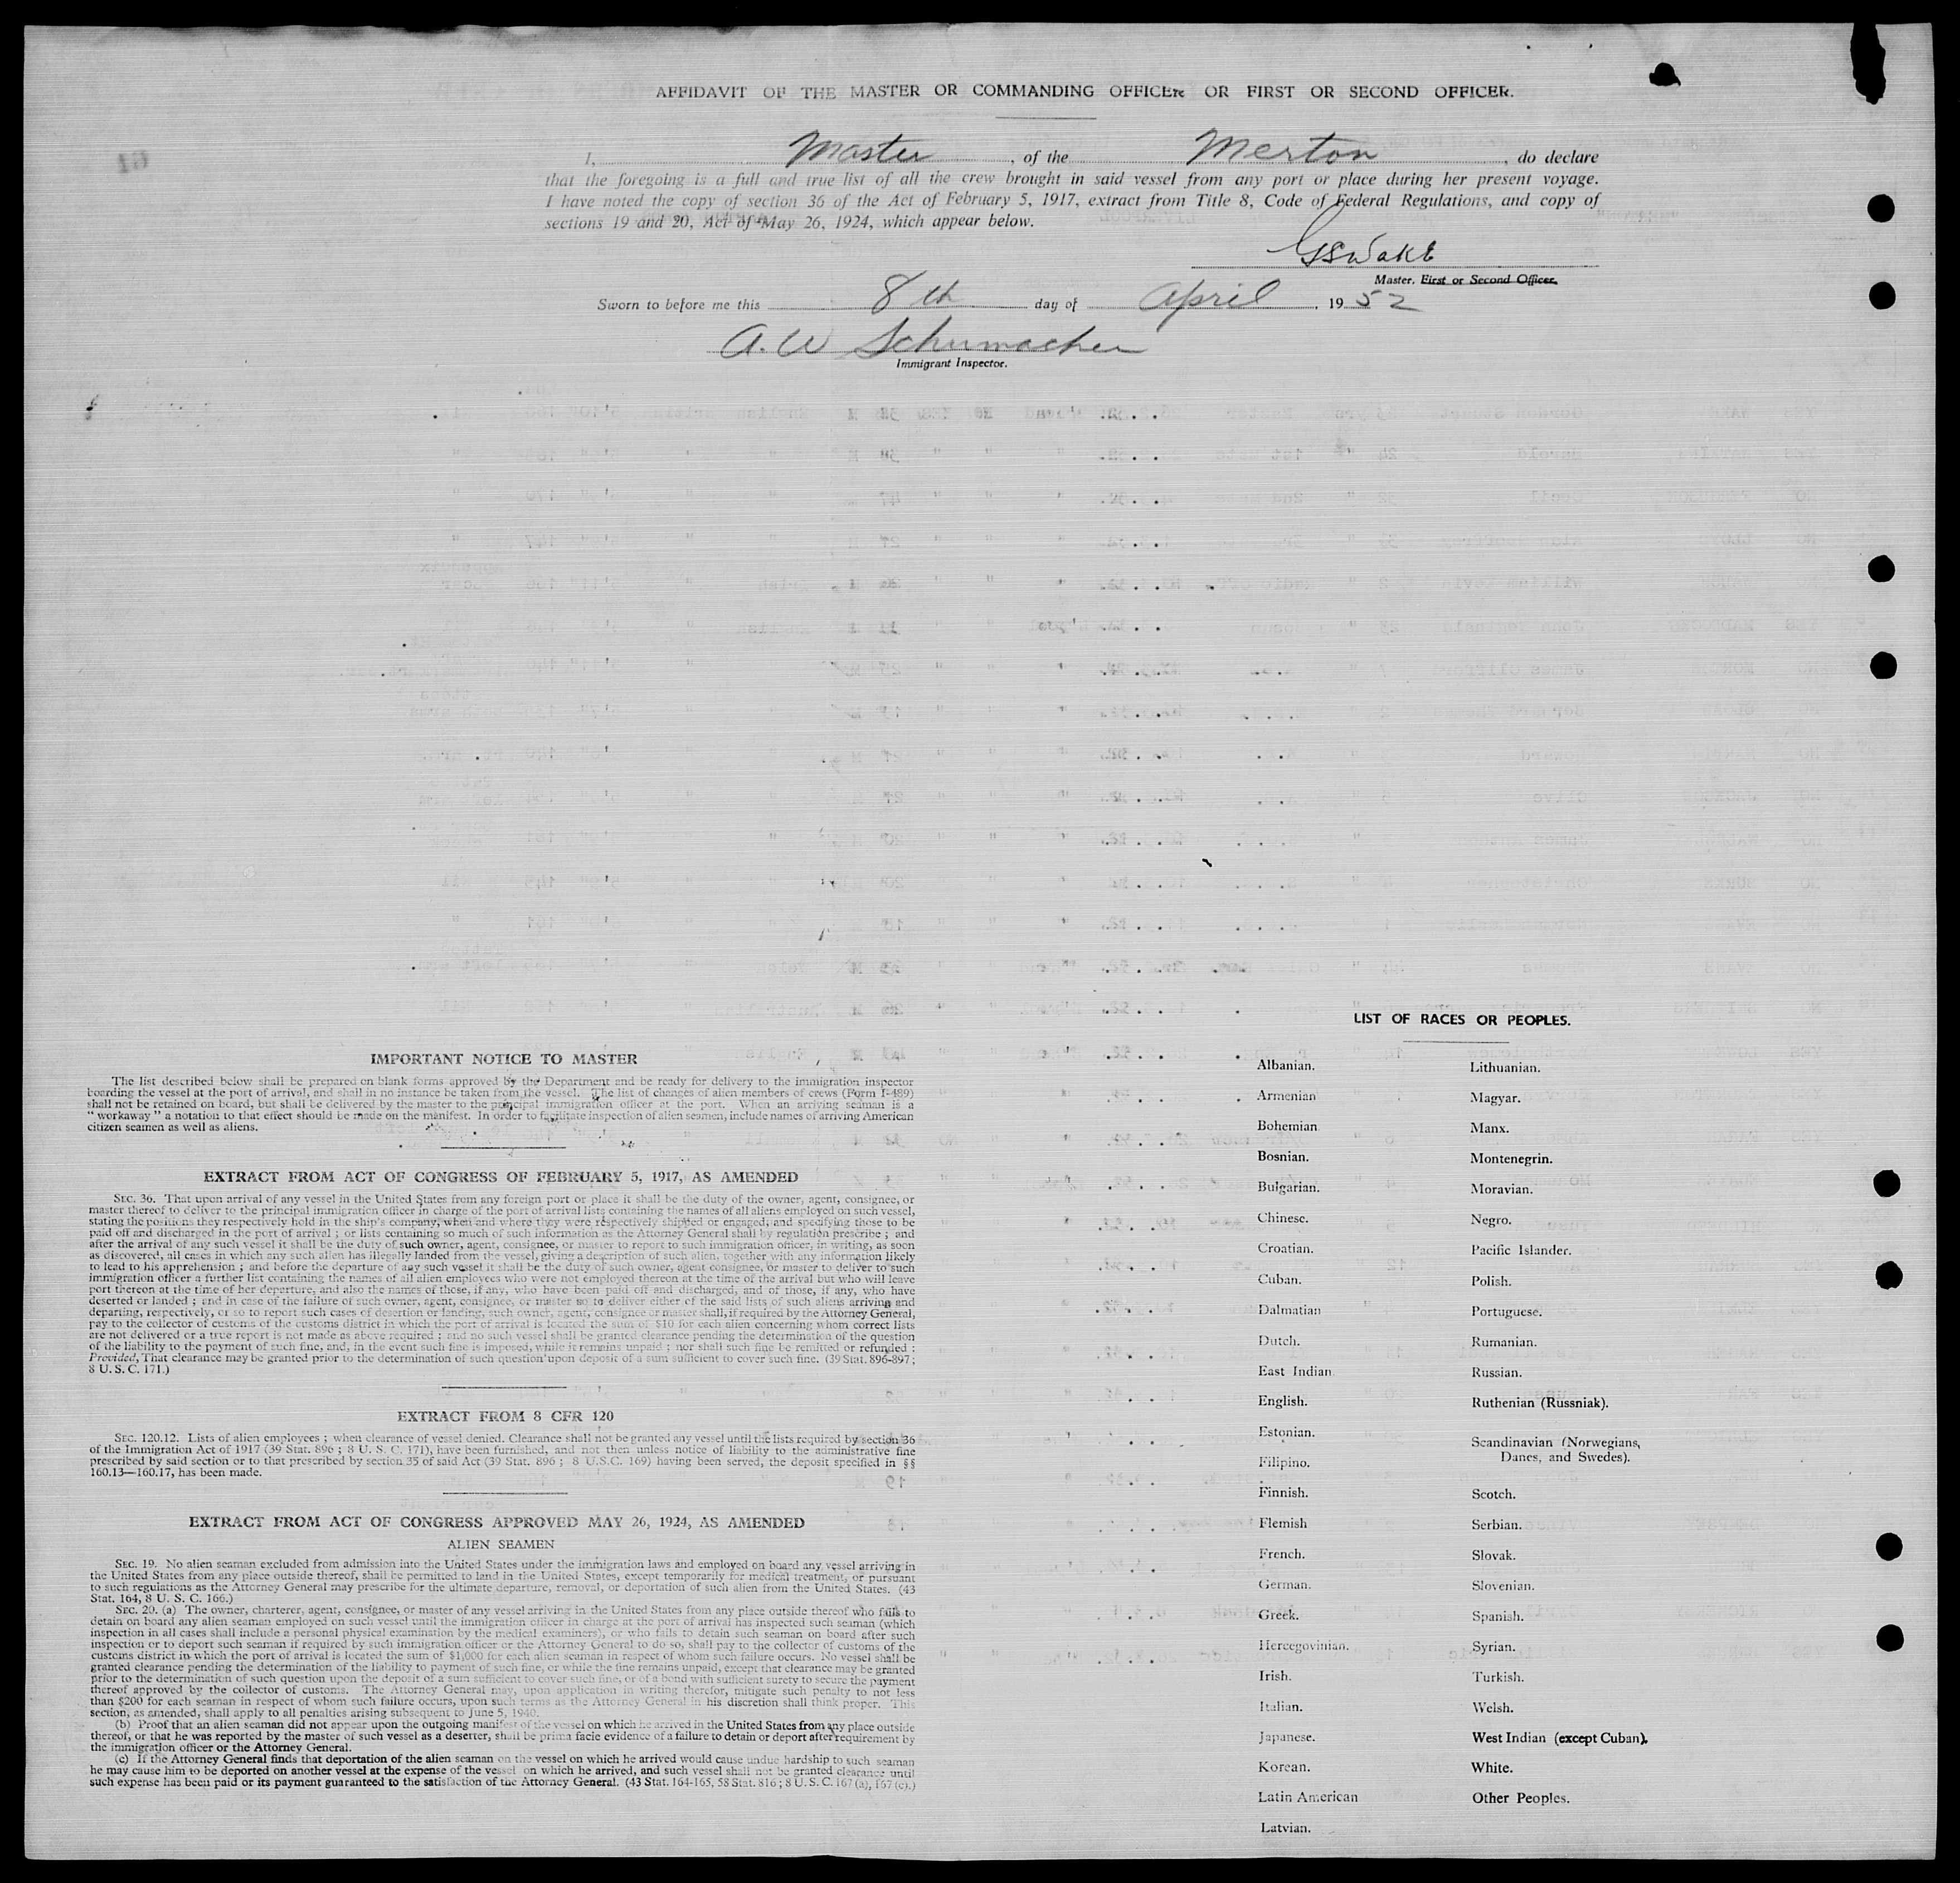 AFFIDAVIT OF THE MASTER OR COMMANDING OFFICER OR FIRST OR SECOND OFFICER.
I, Master, of the Merton, do declare
that the foregoing is a full and true list of all the crew brought in said vessel from any port or place during her present voyage.
I have noted the copy of section 36 of the Act of February 5, 1917, extract from Title 8, Code of Federal Regulations, and copy of
sections 19 and 20, Act of May 26, 1924, which appear below.
GSWake
Master. First or Second Officer.
Sworn to before me this 8th day of April, 1952
A. W Schumacher
Immigrant Inspector.
IMPORTANT NOTICE TO MASTER
The list described below shall be prepared on blank forms approved by the Department and be ready for delivery to the immigration inspector
boarding the vessel at the port of arrival, and shall in no instance be taken from the vessel. The list of changes of alien members of crews (Form I-489)
shall not be retained on board, but shall be delivered by the master to the principal immigration officer at the port. When an arriving seaman is a
" workaway " a notation to that effect should be made on the manifest. In order to facilitate inspection of alien seamen, include names of arriving American
citizen seamen as well as aliens.
EXTRACT FROM ACT OF CONGRESS OF FEBRUARY 5, 1917, AS AMENDED
SEC. 36. That upon arrival of any vessel in the United States from any foreign port or place it shall be the duty of the owner, agent, consignee, or
master thereof to deliver to the principal immigration officer in charge of the port of arrival lists containing the names of all aliens employed on such vessel,
stating the positions they respectively hold in the ship's company, when and where they were respectively shipped or engaged, and specifying those to be
paid off and discharged in the port of arrival ; or lists containing so much of such information as the Attorney General shall by regulation prescribe ; and
after the arrival of any such vessel it shall be the duty of such owner, agent, consignee, or master to report to such immigration officer, in writing, as soon
as discovered, all cases in which any such alien has illegally landed from the vessel, giving a description of such alien, together with any information likely
to lead to his apprehension ; and before the departure of any such vessel it shall be the duty of such owner, agent consignee, or master to deliver to such
immigration officer a further list containing the names of all alien employees who were not employed thereon at the time of the arrival but who will leave
port thereon at the time of her departure, and also the names of those, if any, who have been paid off and discharged, and of those, if any, who have
deserted or landed ; and in case of the failure of such owner, agent, consignee, or master so to deliver either of the said lists of such aliens arriving and
departing, respectively, or so to report such cases of desertion or landing, such owner, agent, consignee or master shall, if required by the Attorney General,
pay to the collector of customs of the customs district in which the port of arrival is located the sum of $10 for each alien concerning whom correct lists
are not delivered or a true report is not made as above required ; and no such vessel shall be granted clearance pending the determination of the question
of the liability to the payment of such fine, and, in the event such fine is imposed, while it remains unpaid ; nor shall such fine be remitted or refunded :
Provided, That clearance may be granted prior to the determination of such question upon deposit of a sum sufficient to cover such fine. (39 Stat. 896-897 ;
8 U. S. C. 171.)
EXTRACT FROM 8 CFR 120
SEC. 120.12. Lists of alien employees ; when clearance of vessel denied. Clearance shall not be granted any vessel until the lists required by section 36
of the Immigration Act of 1917 (39 Stat. 896 ; 8 U. S. C. 171), have been furnished, and not then unless notice of liability to the administrative fine
prescribed by said section or to that prescribed by section 35 of said Act (39 Stat. 896 ; 8 U.S.C. 169) having been served, the deposit specified in §§
160.13—160.17, has been made.
EXTRACT FROM ACT OF CONGRESS APPROVED MAY 26, 1924, AS AMENDED
ALIEN SEAMEN
SEC. 19. No alien seaman excluded from admission into the United States under the immigration laws and employed on board any vessel arriving in
the United States from any place outside thereof, shall be permitted to land in the United States, except temporarily for medical treatment, or pursuant
to such regulations as the Attorney General may prescribe for the ultimate departure, removal, or deportation of such alien from the United States. (43
Stat. 164, 8 U. S. C. 166.)
SEC. 20. (a) The owner, charterer, agent, consignee, or master of any vessel arriving in the United States from any place outside thereof who fails to
detain on board any alien seaman employed on such vessel until the immigration officer in charge at the port of arrival has inspected such seaman (which
inspection in all cases shall include a personal physical examination by the medical examiners), or who fails to detain such seaman on board after such
inspection or to deport such seaman if required by such immigration officer or the Attorney General to do so, shall pay to the collector of customs of the
customs district in which the port of arrival is located the sum of $1,000 for each alien seaman in respect of whom such failure occurs. No vessel shall be
granted clearance pending the determination of the liability to payment of such fine, or while the fine remains unpaid, except that clearance may be granted
prior to the determination of such question upon the deposit of a sum sufficient to cover such fine, or of a bond with sufficient surety to secure the payment
thereof approved by the collector of customs. The Attorney General may, upon application in writing therefor, mitigate such penalty to not less
than $200 for each seaman in respect of whom such failure occurs, upon such terms as the Attorney General in his discretion shall think proper. This
section, as amended, shall apply to all penalties arising subsequent to June 5, 1940.
(b) Proof that an alien seaman did not appear upon the outgoing manifest of the vessel on which he arrived in the United States from any place outside
thereof, or that he was reported by the master of such vessel as a deserter, shall be prima facie evidence of a failure to detain or deport after requirement by
the immigration officer or the Attorney General.
(c) If the Attorney General finds that deportation of the alien seaman on the vessel on which he arrived would cause undue hardship to such seaman
he may cause him to be deported on another vessel at the expense of the vessel on which he arrived, and such vessel shall not be granted clearance until
such expense has been paid or its payment guaranteed to the satisfaction of the Attorney General. (43 Stat. 164-165, 58 Stat. 816 ; 8 U. S. C. 167 (a), 167 (c).)
LIST OF RACES OR PEOPLES.
Albanian.
Armenian
Bohemian
Bosnian.
Bulgarian.
Chinese.
Croatian.
Cuban.
Dalmatian
Dutch.
East Indian
English.
Estonian.
Filipino.
Finnish.
Flemish
French.
German.
Greek.
Hercegovinian.
Irish.
Italian.
Japanese.
Korean.
Latin American
Latvian.
Lithuanian.
Magyar.
Manx.
Montenegrin.
Moravian.
Negro.
Pacific Islander.
Polish.
Portuguese.
Rumanian.
Russian.
Ruthenian (Russniak).
Scandinavian (Norwegians,
Danes, and Swedes).
Scotch.
Serbian.
Slovak.
Slovenian.
Spanish.
Syrian.
Turkish.
Welsh.
West Indian (except Cuban).
White.
Other Peoples.